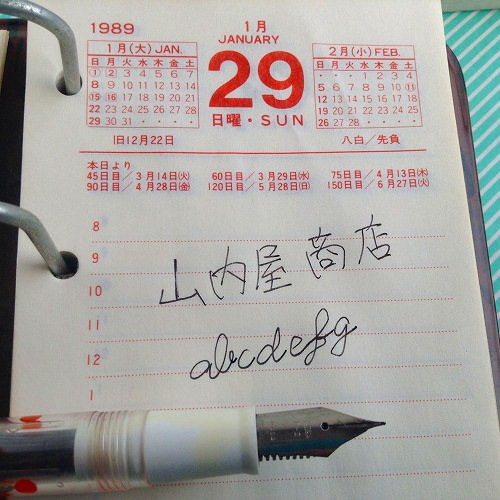 1989
1月
JANUARY
29
日曜・SUN
1月(大)JAN.
日 月 火 水 木 金 土
① ② 3 4 5 6 7
8 9 10 11 12 13 14
⑮ ⑯ 17 18 19 20 21
22 23 24 25 26 27 28
29 30 31 ・ ・ ・ ・
2月(小)FEB.
日 月 火 水 木 金 土
・ ・ ・ 1 2 3 4
5 6 7 8 9 10 ⑪
12 13 14 15 16 17 18
19 20 21 22 23 24 25
26 27 28 ・ ・ ・ ・
旧12月22日
八白/先負
本日より
45日目/3月14日(火) 60日目/3月29日(水) 75日目/4月13日(木)
90日目/4月28日(金) 120日目/5月28日(日) 150日目/6月27日(火)
8
9
山内屋商店
10
11
abcdefg
12
1